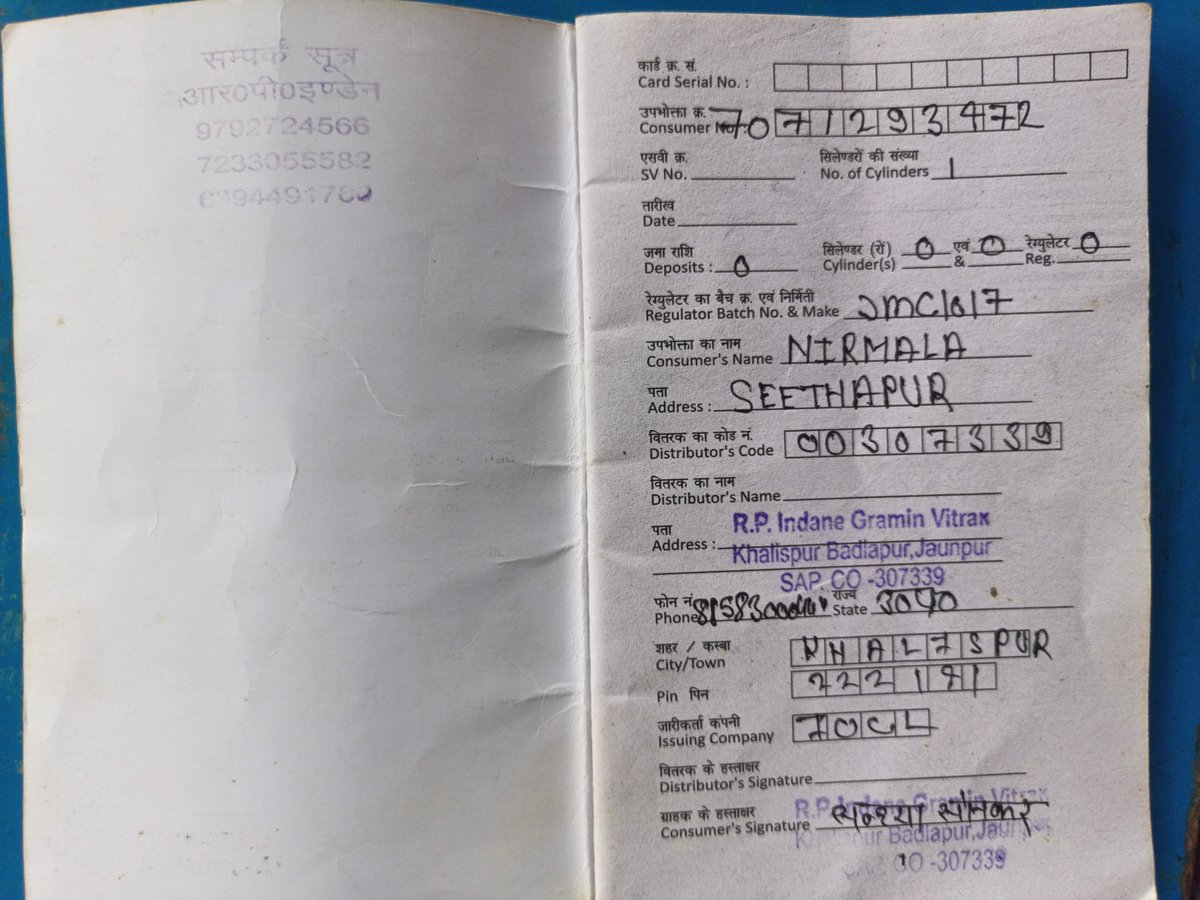 सम्पर्क सूत्र
आर0पी0इण्डेन
9792724566
7233055582
कार्ड क्र. सं.
Card Serial No. :
उपभोक्ता क्र.
Consumer No. : 7071293472
एसवी क्र. सिलेण्डरों की संख्या
SV No. No. of Cylinders 1
तारीख
Date
जमा राशि सिलेण्डर (रों) 0 एवं 0 रेग्युलेटर 0
Deposits : 0 Cylinder(s) & Reg.
रेग्युलेटर का बैच क्र. एवं निर्मिती
Regulator Batch No. & Make
उपभोक्ता का नाम
Consumer's Name NIRMALA
पता
Address : SEETHAPUR
वितरक का कोड नं.
Distributor's Code 00307339
वितरक का नाम
Distributor's Name
पता R.P. Indane Gramin Vitrak
Address : Khalispur Badlapur,Jaunpur
SAP. CO -307339
फोन नं. राज्य
Phone State उ0प्र0
शहर / कस्बा
City/Town KHALISPUR
Pin पिन 222181
जारीकर्ता कंपनी
Issuing Company IOCL
वितरक के हस्ताक्षर
Distributor's Signature
R.P. Indane Gramin Vitrak
ग्राहक के हस्ताक्षर
Consumer's Signature सोनकर
Khalispur Badlapur,Jaunpur
SAP. CO -307339